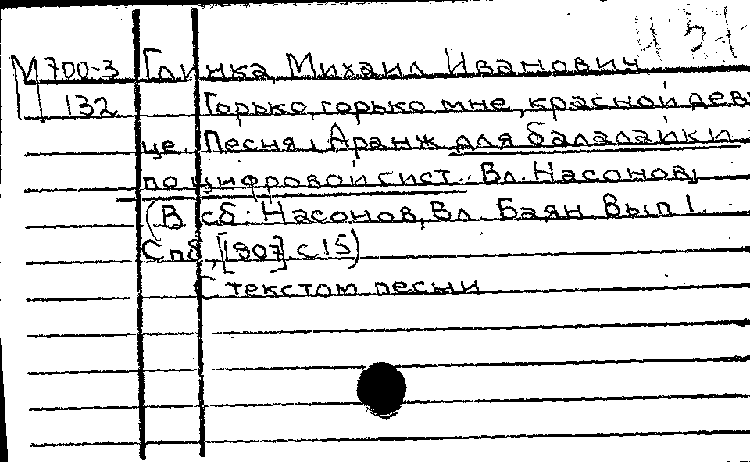 М 700-3 Глинка, Михаил Иванович
132 Горько, горько мне, красной деви
це. Песня. Аранж для балалайки
по цифровой сист. Вл. Насонов,
(В сб: Насонов, Вл. Баян Вып 1.
Спб, [1907]. с. 15)
С текстом песни